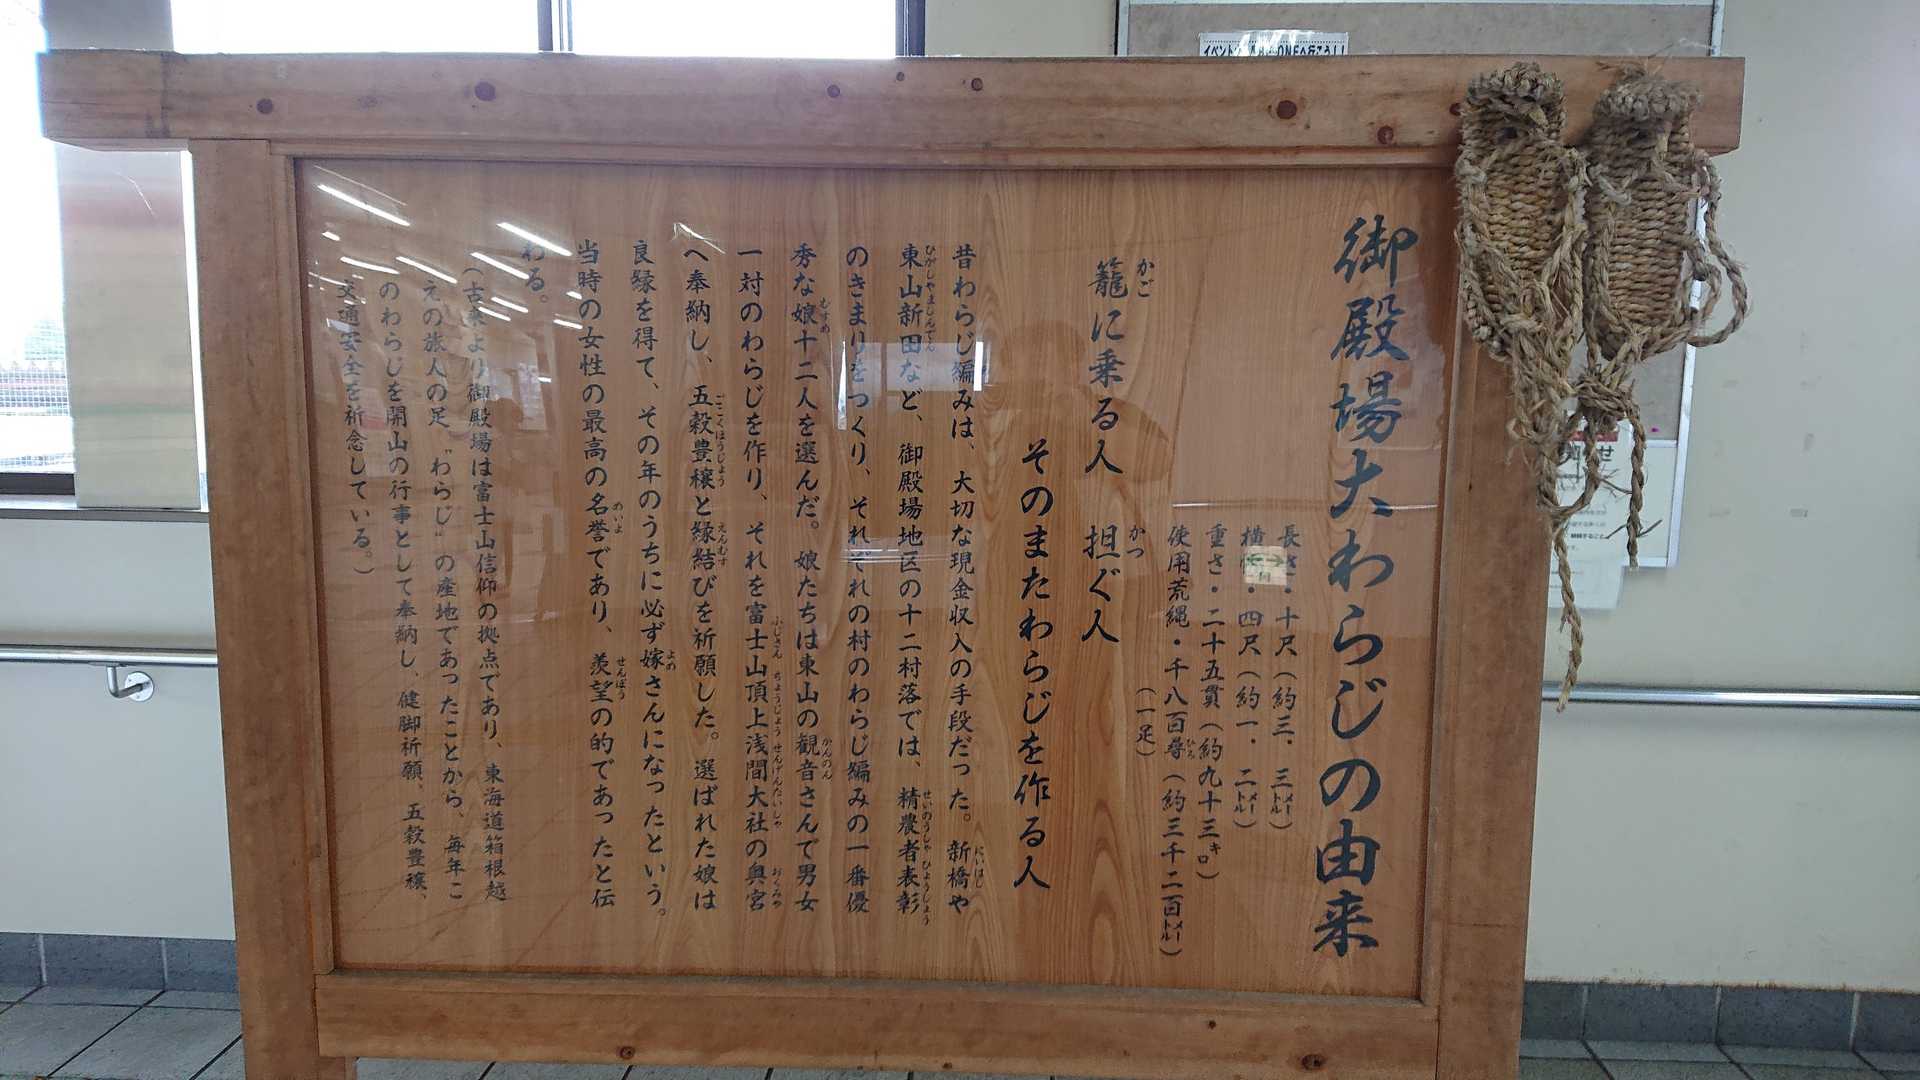 御殿場大わらじの由来
長さ・十尺（約三．三㍍）
横　・四尺（約一．二㍍）
重さ・二十五貫（約九十三㌔）
使用荒縄・千八百尋（約三千二百㍍）
（一足）
籠に乗る人　担ぐ人
そのまたわらじを作る人
昔わらじ編みは、大切な現金収入の手段だった。新橋や
東山新田など、御殿場地区の十二村落では、精農者表彰
のきまりをつくり、それぞれの村のわらじ編みの一番優
秀な娘十二人を選んだ。娘たちは東山の観音さんで男女
一対のわらじを作り、それを富士山頂上浅間大社の奥宮
へ奉納し、五穀豊穣と縁結びを祈願した。選ばれた娘は
良縁を得て、その年のうちに必ず嫁さんになったという。
当時の女性の最高の名誉であり、羨望の的であったと伝
わる。
（古来より御殿場は富士山信仰の拠点であり、東海道箱根越
えの旅人の足、〝わらじ〟の産地であったことから、毎年こ
のわらじを開山の行事として奉納し、健脚祈願、五穀豊穣、
交通安全を祈念している。）